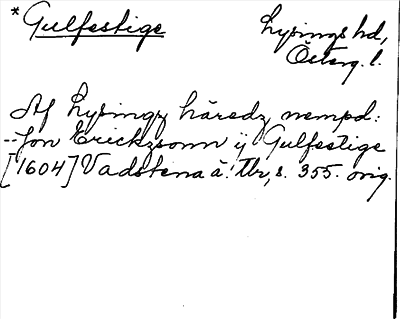 *Gulfestige Lysings hd,
Österg. l.
Af Lysingz häredz nempd:
--Jon Erickzsonn ij Gulfestige
[1604] Vadstena ä. tbr, s. 355. orig.